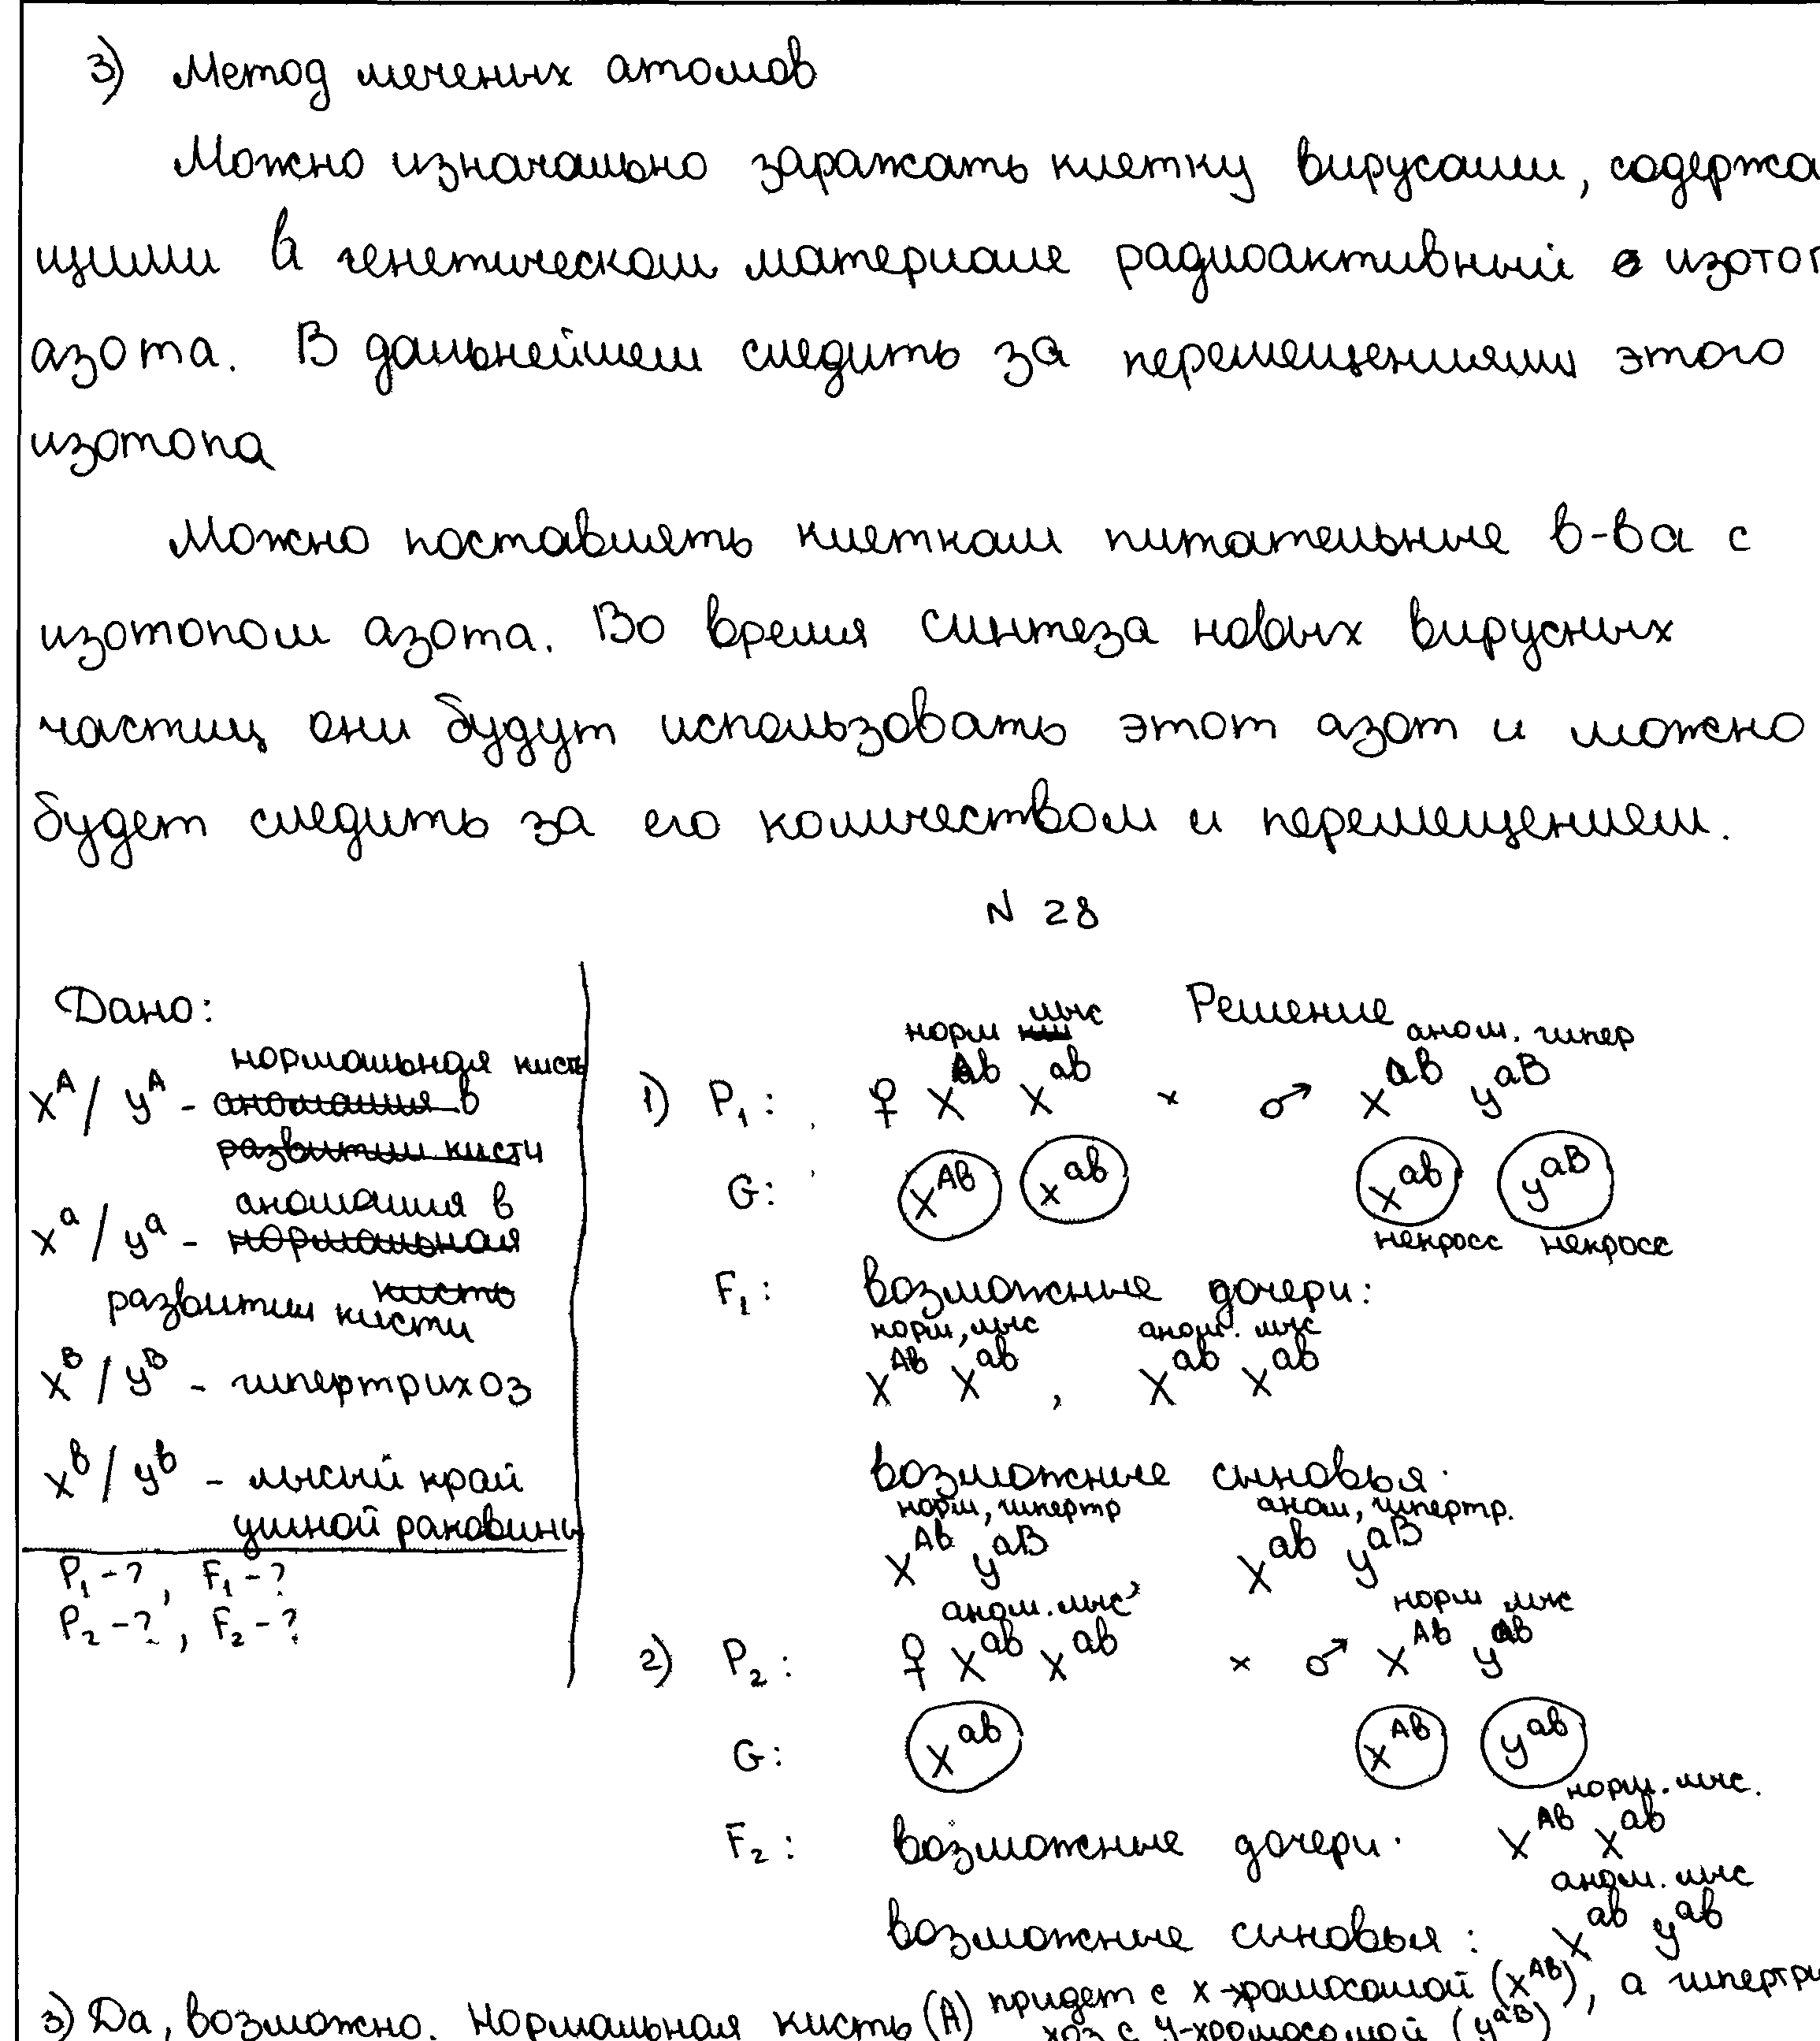 3) Метод меченых атомов
Можно изначально заражать клетку вирусами, содержа
щими в генетическом материале радиоактивный изотоп
азота. В дальнейшем следить за перемещениями этого
изотопа
Можно поставлять клеткам питательные в-ва с
изотопом азота. Во время синтеза новых вирусных
частиц они будут использовать этот азот и можно
будет следить за его количеством и перемещением.
N 28
Дано:
нормальная кисть
X^A / Y^A - аномалия в
развитии кисти
аномалия в
X^a / Y^a - нормальная
кисть
развитии кисти
X^B / Y^B - гипертрихоз
X^b / Y^b - лысый край
ушной раковины
P₁ - ?, F₁ - ?
P₂ - ?, F₂ - ?
Решение
норм лыс аном. гипер
1) P₁: ♀ X^Ab X^ab × ♂ X^ab Y^aB
G: X^Ab X^ab X^ab Y^aB
некросс некросс
F₁: возможные дочери:
норм, лыс аном. лыс
X^Ab X^ab , X^ab X^ab
возможные сыновья:
норм, гипертр аном, гипертр.
X^Ab Y^aB X^ab Y^aB
аном. лыс норм лыс
2) P₂: ♀ X^ab X^ab × ♂ X^Ab Y^ab
G: X^ab X^Ab Y^ab
норм. лыс.
F₂: возможные дочери: X^Ab X^ab
аном. лыс
возможные сыновья: X^ab Y^ab
3) Да, возможно. Нормальная кисть (A) придет с X-хромосомой (X^Ab), а гипертри
хоз с Y-хромосомой (Y^aB)